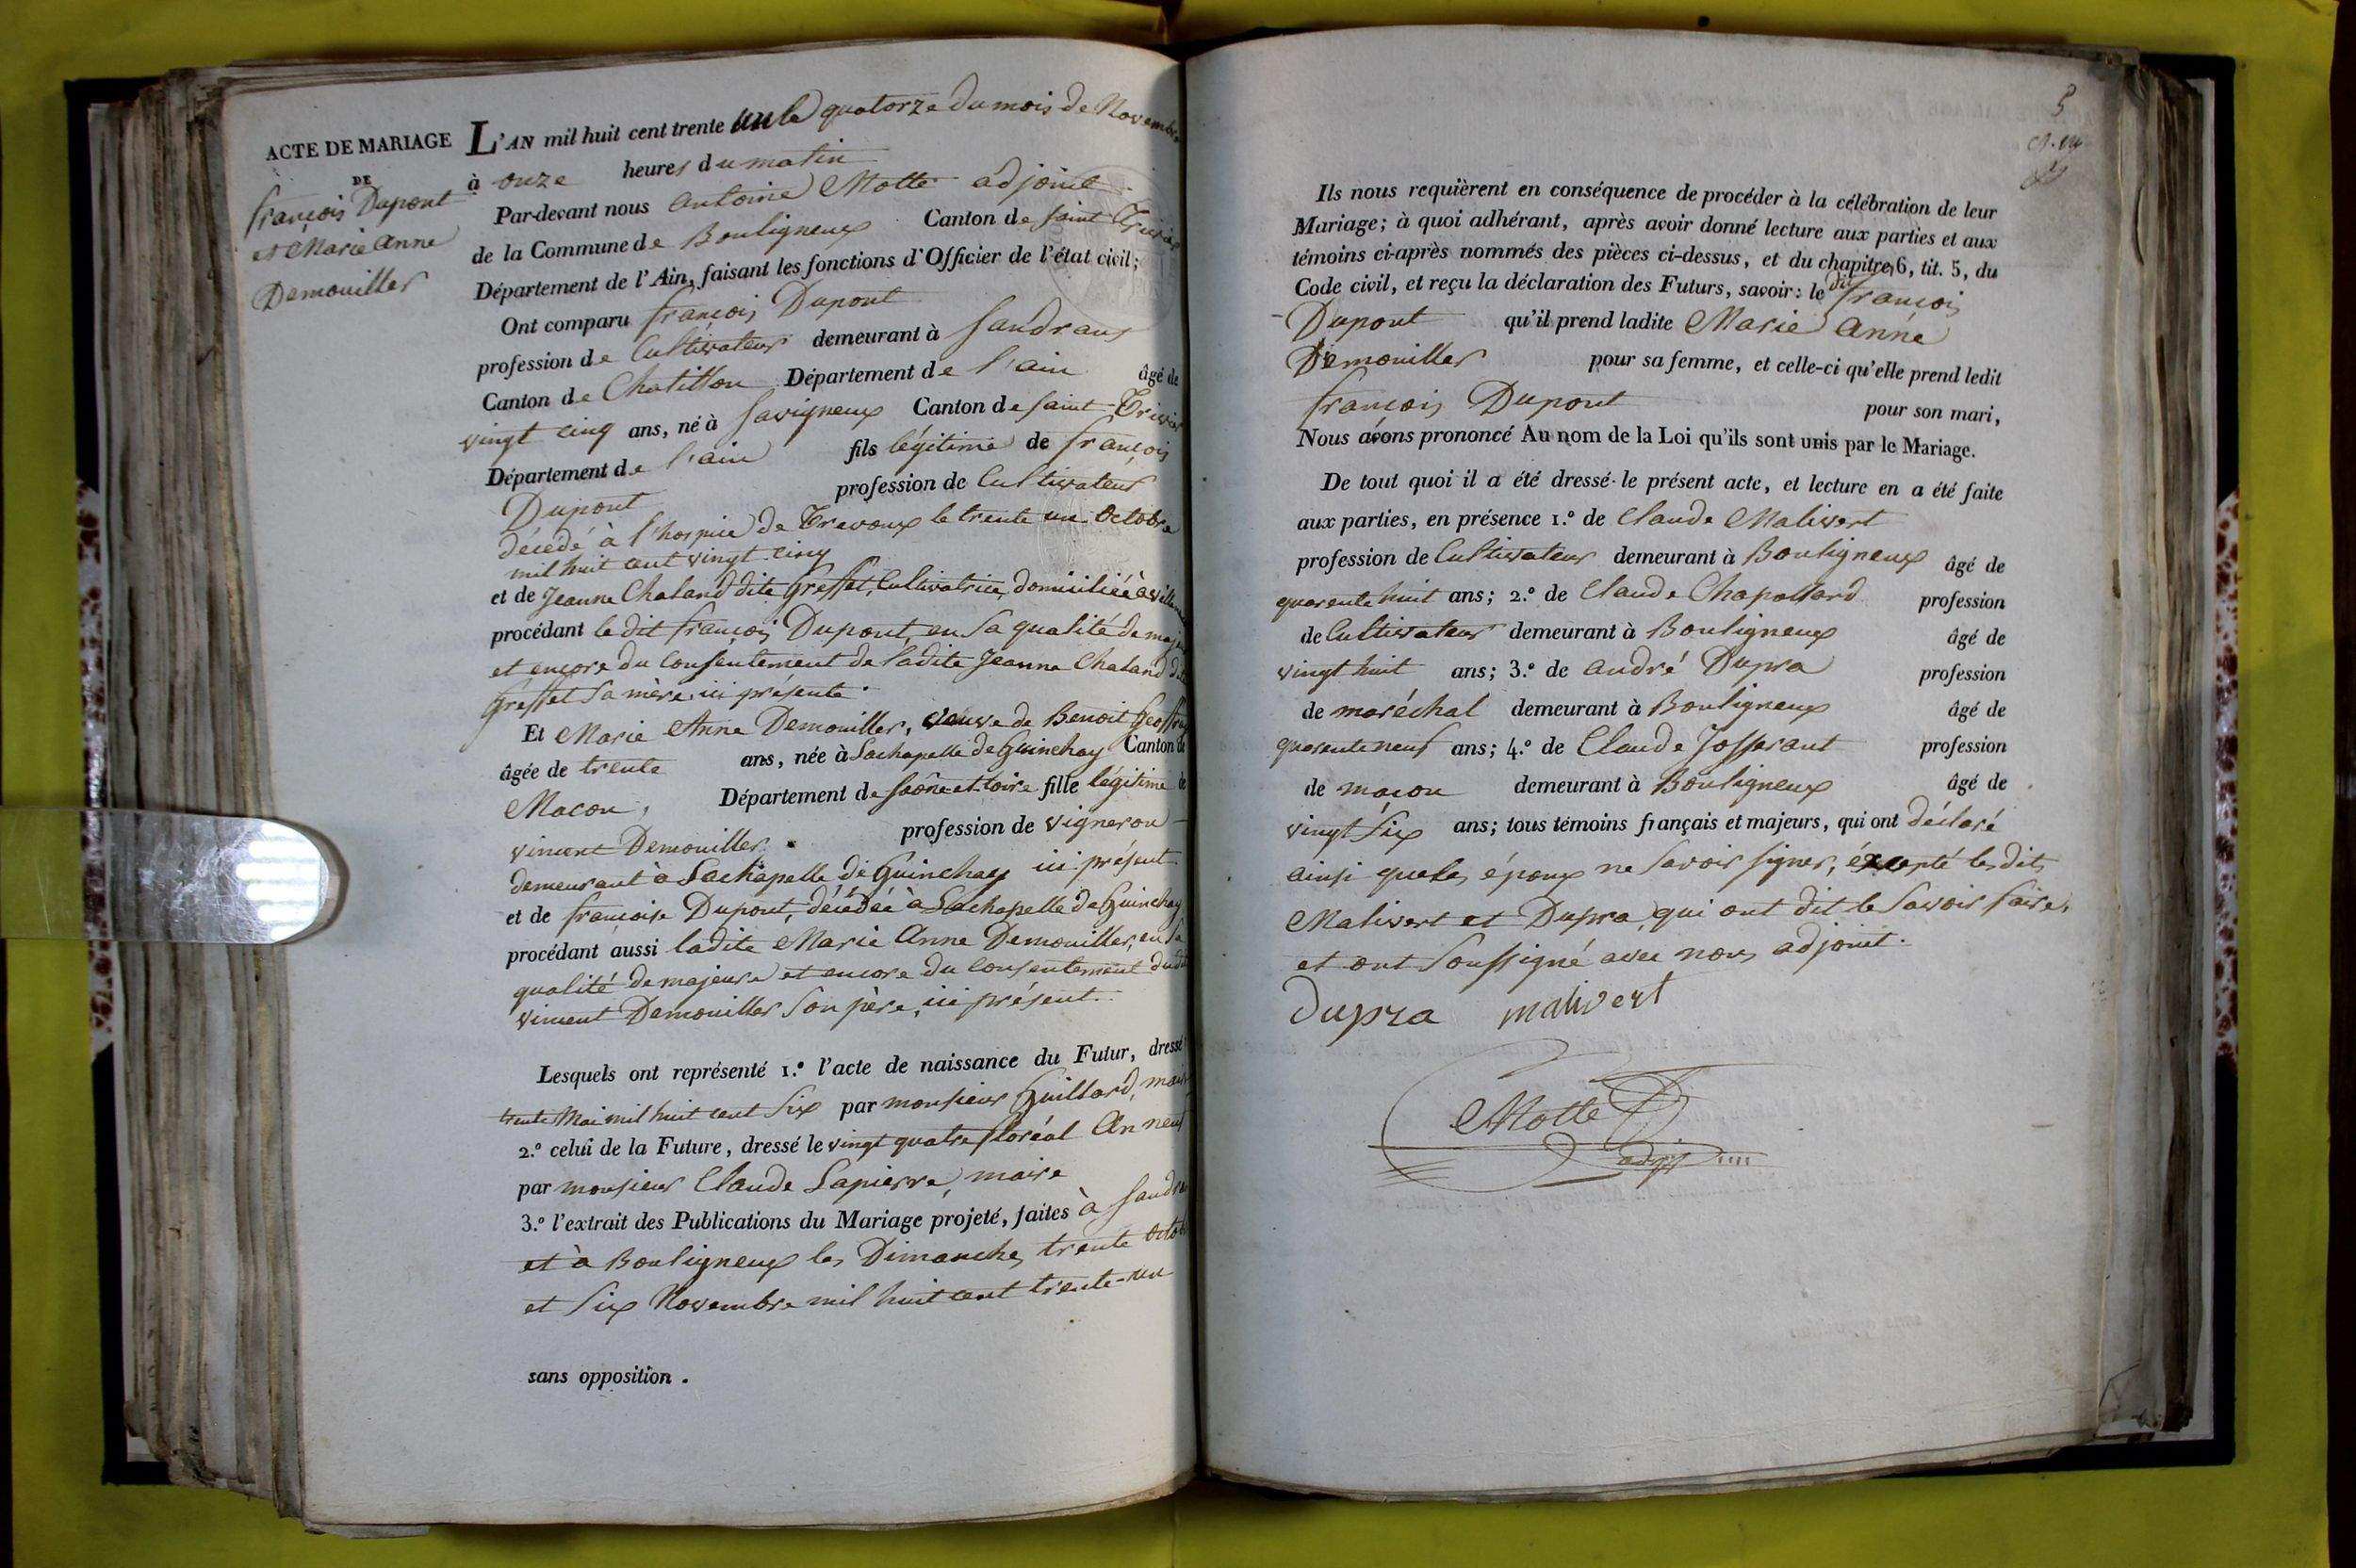 ACTE DE MARIAGE
DE
françois Dupont
et Marie Anne
Demouiller
L'AN mil huit cent trente un le quatorze du mois de Novembre
à onze heures du matin
Par-devant nous Antoine Motte adjoint
de la Commune de Bouligneux Canton de Saint Trivier
Département de l'Ain, faisant les fonctions d'Officier de l'état civil;
Ont comparu françois Dupont
profession de Cultivateur demeurant à Sandrans
Canton de Chatillon Département de l'ain âgé de
vingt cinq ans, né à Savigneux Canton de Saint Trivier
Département de l'ain fils légitime de françois
Dupont profession de Cultivateur
décédé à l'hospice de Trevoux le trente un Octobre
mil huit cent vingt cinq
et de Jeanne Chaland dite Greffet, Cultivatrice, domiciliée à
procédant le dit françois Dupont, en sa qualité de majeur
et encore du consentement de ladite Jeanne Chaland dite
Greffet sa mère, ici présente.
Et Marie Anne Demouiller, veuve de Benoit Geoffray
âgée de trente ans, née à Lachapelle de Guinchay Canton de
Macon, Département de Saône et Loire fille légitime de
vincent Demouiller profession de vigneron
demeurant à Lachapelle de Guinchay ici présent
et de françoise Dupont, décédée à Lachapelle de Guinchay
procédant aussi ladite Marie Anne Demouiller, en sa
qualité de majeure et encore du consentement dudit
vincent Demouiller son père, ici présent.
Lesquels ont représenté 1.° l'acte de naissance du Futur, dressé
trente Mai mil huit cent six par monsieur Guillard, maire
2.° celui de la Future, dressé le vingt quatre floréal An neuf
par monsieur Claude Lapierre, maire
3.° l'extrait des Publications du Mariage projeté, faites à Sandrans
et à Bouligneux les Dimanches trente Octobre
et six Novembre mil huit cent trente-un
sans opposition.
5
Ils nous requièrent en conséquence de procéder à la célébration de leur
Mariage; à quoi adhérant, après avoir donné lecture aux parties et aux
témoins ci-après nommés des pièces ci-dessus, et du chapitre 6, tit. 5, du
Code civil, et reçu la déclaration des Futurs, savoir: le dit françois
Dupont qu'il prend ladite Marie Anne
Demouiller pour sa femme, et celle-ci qu'elle prend ledit
françois Dupont pour son mari,
Nous avons prononcé Au nom de la Loi qu'ils sont unis par le Mariage.
De tout quoi il a été dressé le présent acte, et lecture en a été faite
aux parties, en présence 1.° de Claude Malivert
profession de Cultivateur demeurant à Bouligneux âgé de
quarente huit ans; 2.° de Claude Chapollard profession
de Cultivateur demeurant à Bouligneux âgé de
vingt huit ans; 3.° de andré Dupra profession
de maréchal demeurant à Bouligneux âgé de
quarente neuf ans; 4.° de Claude Josserant profession
de macon demeurant à Bouligneux âgé de
vingt six ans; tous témoins français et majeurs, qui ont déclaré
ainsi que les époux ne savoir signer, éxcepté les dits
Malivert et Dupra, qui ont dit le savoir faire,
et ont soussigné avec nous adjoint.
Dupra malivert
Motte
adj